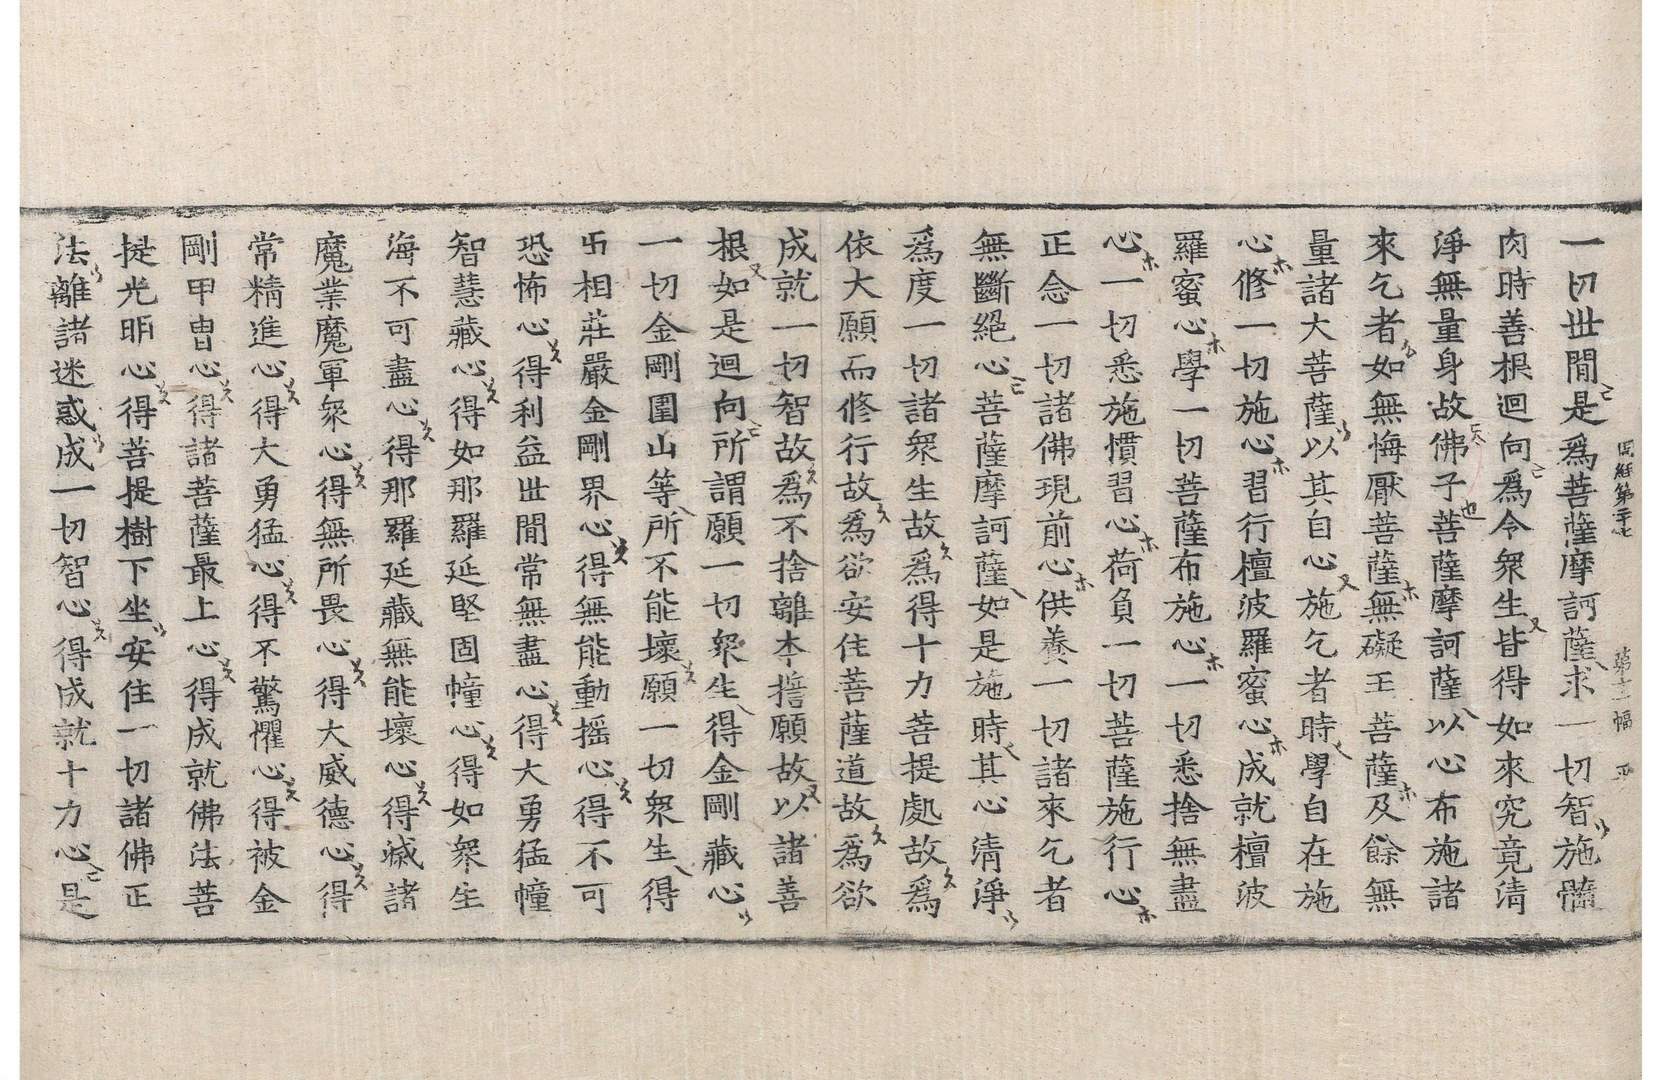 周經第二十七　第十二幅
一切世閒是爲菩薩摩訶薩求一切智施髓
肉時善根迴向爲令衆生皆得如來究竟清
淨無量身故佛子菩薩摩訶薩以心布施諸
來乞者如無悔厭菩薩無礙王菩薩及餘無
量諸大菩薩以其自心施乞者時學自在施
心修一切施心習行檀波羅蜜心成就檀波
羅蜜心學一切菩薩布施心一切悉捨無盡
心一切悉施慣習心荷負一切菩薩施行心
正念一切諸佛現前心供養一切諸來乞者
無斷絕心菩薩摩訶薩如是施時其心清淨
爲度一切諸衆生故爲得十力菩提處故爲
依大願而修行故爲欲安住菩薩道故爲欲
成就一切智故爲不捨離本誓願故以諸善
根如是迴向所謂願一切衆生得金剛藏心
一切金剛圍山等所不能壞願一切衆生得
卍相莊嚴金剛界心得無能動搖心得不可
恐怖心得利益世閒常無盡心得大勇猛幢
智慧藏心得如那羅延堅固幢心得如衆生
海不可盡心得那羅延藏無能壞心得滅諸
魔業魔軍衆心得無所畏心得大威德心得
常精進心得大勇猛心得不驚懼心得被金
剛甲冑心得諸菩薩最上心得成就佛法菩
提光明心得菩提樹下坐安住一切諸佛正
法離諸迷惑成一切智心得成就十力心是